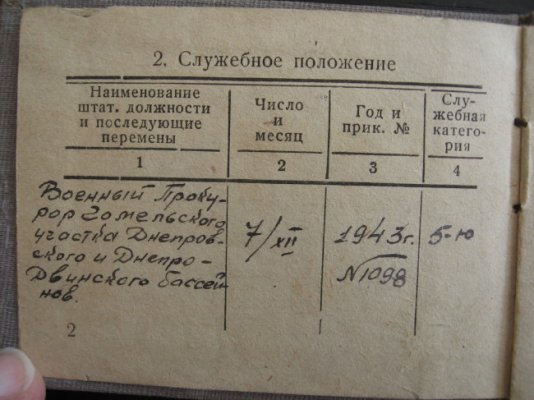 2. Служебное положение
Наименование
штат. должности
и последующие
перемены
Число
и
месяц
Год и
прик. №
Слу-
жебная
катего-
рия
1
2
3
4
Военный Проку-
рор Гомельского
участка Днепров-
ского и Днепро-
Двинского бассей-
нов.
7/XII
1943 г.
N 1098
5-ю
2